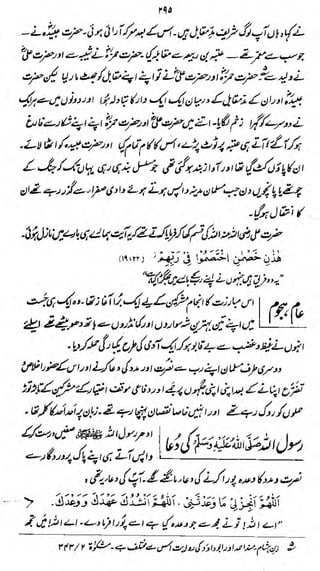 ۲۹۵
نے کہا، ہاں آپ لوگ شریف مدمقابل ہیں۔ اس کے بعد معرکہ آرائی ہوئی۔ حضرت عبیدہؓ نے ــــ
جو سب سے معمر تھے ــــ عتبہ بن ربیعہ سے مقابلہ کیا، حضرت حمزہؓ نے شیبہ سے اور حضرت علیؓ
نے ولید سے۔ حضرت حمزہؓ اور حضرت علیؓ نے تو اپنے اپنے مقابل کو جھٹ مار لیا لیکن حضرت
عبیدہؓ اور ان کے مدمقابل کے درمیان ایک ایک وار کا تبادلہ ہوا اور دونوں میں سے ہر ایک
نے دوسرے کو گہرا زخم لگایا۔ اتنے میں حضرت علیؓ اور حضرت حمزہؓ اپنے اپنے شکار سے فارغ
ہو کر آ گئے، آتے ہی عتبہ پر ٹوٹ پڑے، اس کا کام تمام کیا اور حضرت عبیدہ کو اٹھا لائے۔
ان کا پاؤں کٹ گیا تھا اور آواز بند ہو گئی تھی جو مسلسل بند ہی رہی یہاں تک کہ جنگ کے
چوتھے یا پانچویں دن جب مسلمان مدینہ واپس ہوتے ہوئے وادی صفراء سے گذر رہے تھے ان
کا انتقال ہو گیا۔
حضرت علی رضی اللہ عنہ اللہ کی قسم کھا کر فرمایا کرتے تھے کہ یہ آیت ہمارے ہی بارے میں نازل ہوئی۔
هٰذٰنِ خَصْمٰنِ اخْتَصَمُوْا فِيْ رَبِّهِمْ (۱۹:۲۲)
”یہ دو فریق ہیں جنہوں نے اپنے رب کے بارے میں جھگڑا کیا ہے“
عام ہجوم
اس مبارزت کا انجام مشرکین کے لیے ایک برا آغاز تھا۔ وہ ایک ہی جست
میں اپنے تین بہترین شہسواروں اور کمانڈروں سے ہاتھ دھو بیٹھے تھے اسلیئے
انہوں نے غیظ و غضب سے بے قابو ہو کر ایک آدمی کی طرح یکبارگی حملہ کر دیا۔
دوسری طرف مسلمان اپنے رب سے نصرت اور مدد کی دعا کرنے اور اس کے حضور اخلاص و
تضرع اپنانے کے بعد اپنی اپنی جگہوں پر جمے اور دفاعی موقف اختیار کیے مشرکین کے تابڑ توڑ
حملوں کو روک رہے تھے اور انہیں خاصا نقصان پہنچا رہے تھے۔ زبان پر اَحد اَحد کا کلمہ تھا۔
رسول اللہ صَلَّی اللہُ عَلَیْہِ وَسَلَّم کی دُعا
ادھر رسول اللہ ﷺ صفیں درست کر کے
واپس آتے ہی اپنے پاک پروردگار سے
نصرت و مدد کا وعدہ پورا کرنے کی دعا مانگنے لگے۔ آپ کی دعا یہ تھی:
اَللّٰهُمَّ اَنْجِزْ لِيْ مَا وَعَدْتَّنِيْ، اَللّٰهُمَّ اَنْشُدُكَ عَهْدَكَ وَوَعْدَكَ.
”اے اللہ! تو نے مجھ سے جو وعدہ کیا ہے اسے پورا فرما دے۔ اے اللہ! میں تجھ
ابن ہشام، مسند احمد اور ابو داؤد کی روایت اس سے مختلف ہے۔ مشکوٰۃ ۲/ ۳۴۳